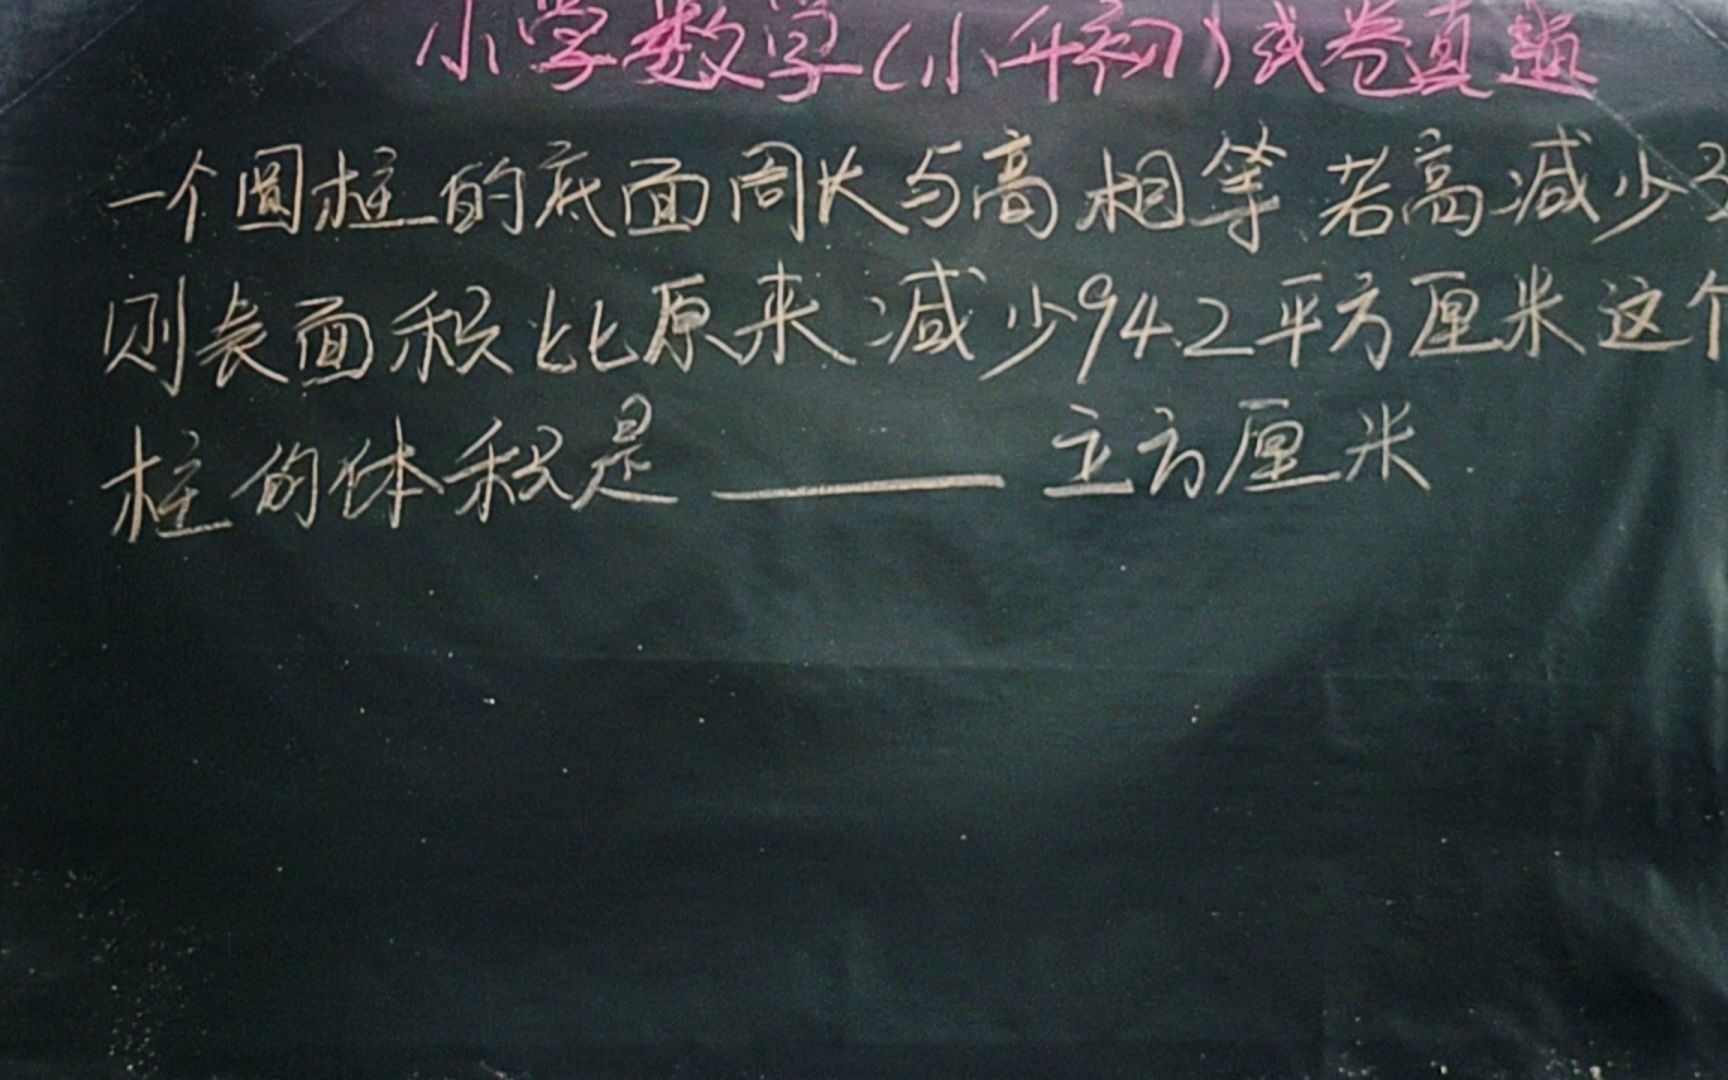 小学数学(小升初)试卷真题
一个圆柱的底面周长与高相等若高减少3
则表面积比原来减少94.2平方厘米这个
柱的体积是______立方厘米